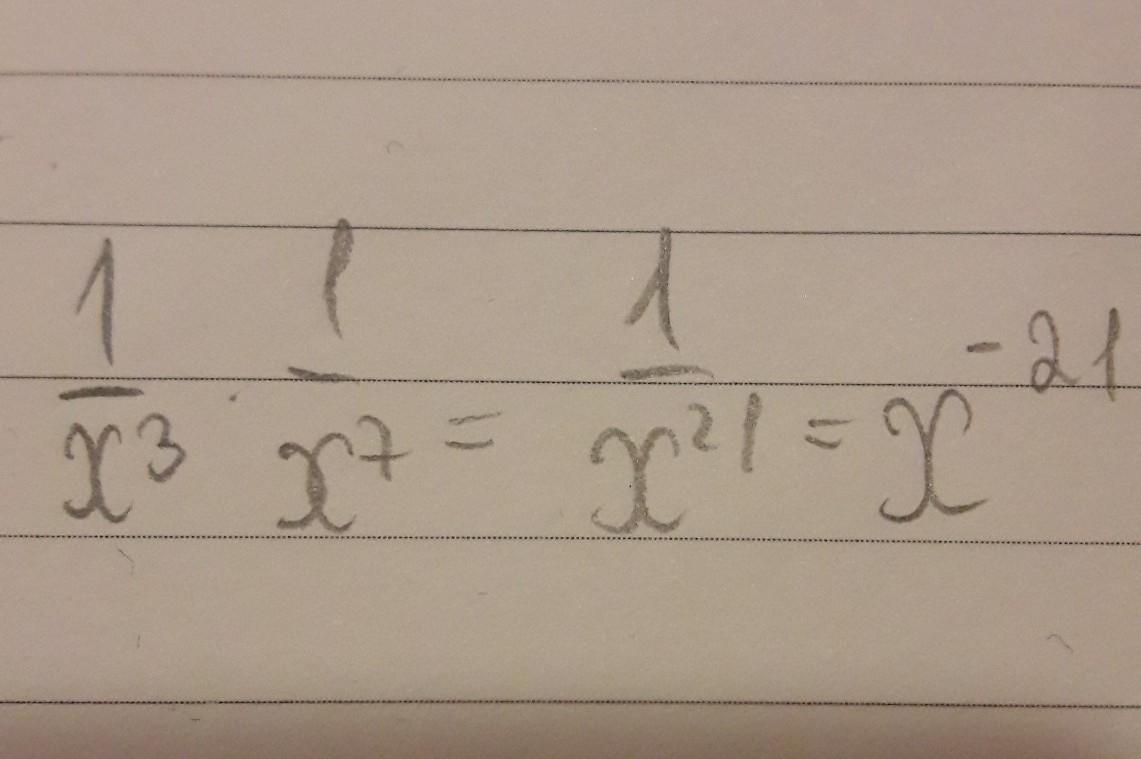 1/x³ · 1/x⁷ = 1/x²¹ = x⁻²¹